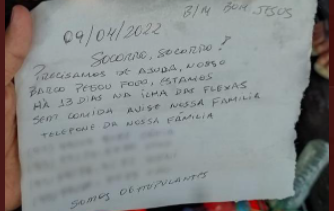 B/M BOM JESUS
09/04/2022
SOCORRO, SOCORRO!
PRECISAMOS DE AJUDA, NOSSO
BARCO PEGOU FOGO, ESTAMOS
HÁ 13 DIAS NA ILHA DAS FLEXAS
SEM COMIDA AVISE NOSSA FAMILIA
TELEFONE DA NOSSA FAMILIA
SOMOS TRIPULANTES